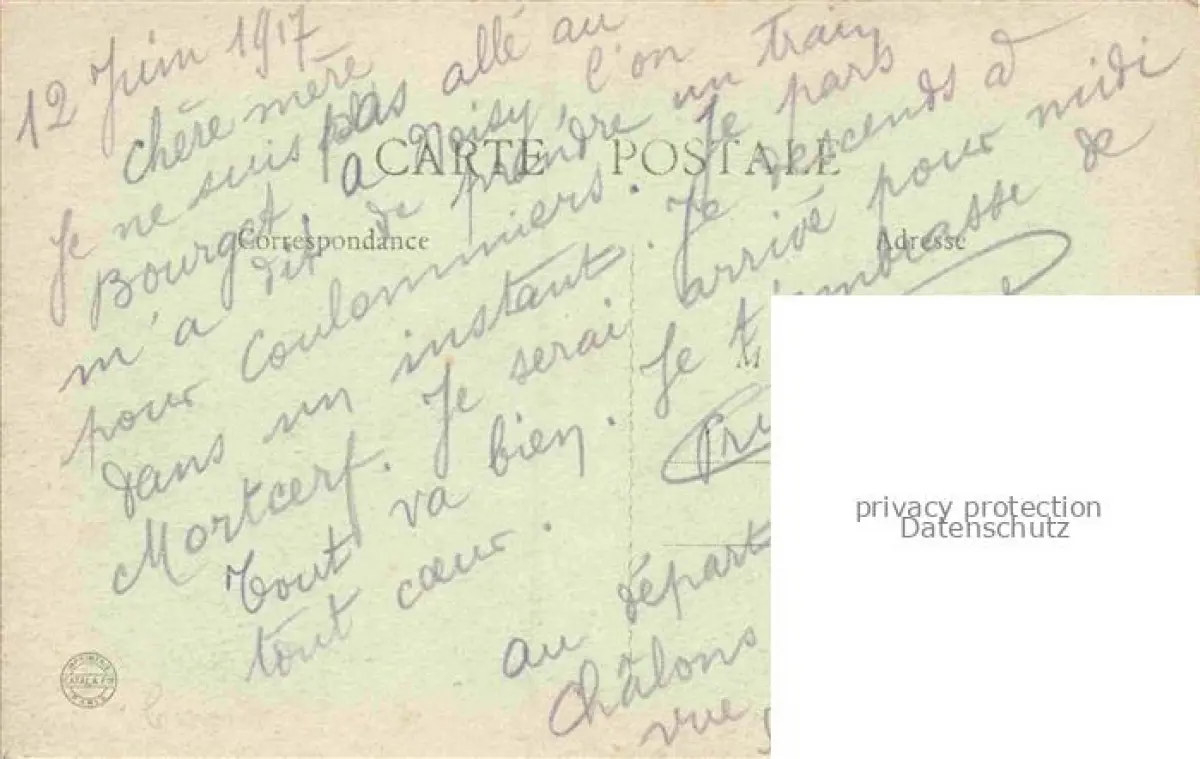 12 Juin 1917
chère mère
Je ne suis pas allé au
Bourget. a Noisy l'on
m'a dit de prandre un train
pour Coulommiers. Je pars
dans un instant. Je descends à
Mortcerf. Je serai arrivé pour midi
Tout va bien. Je t'embrasse de
tout cœur.
CARTE POSTALE
Correspondance
Adresse
M
au départ
Châlons
vue
IMPRIMERIES
CATALA FRES
PARIS
privacy protection
Datenschutz